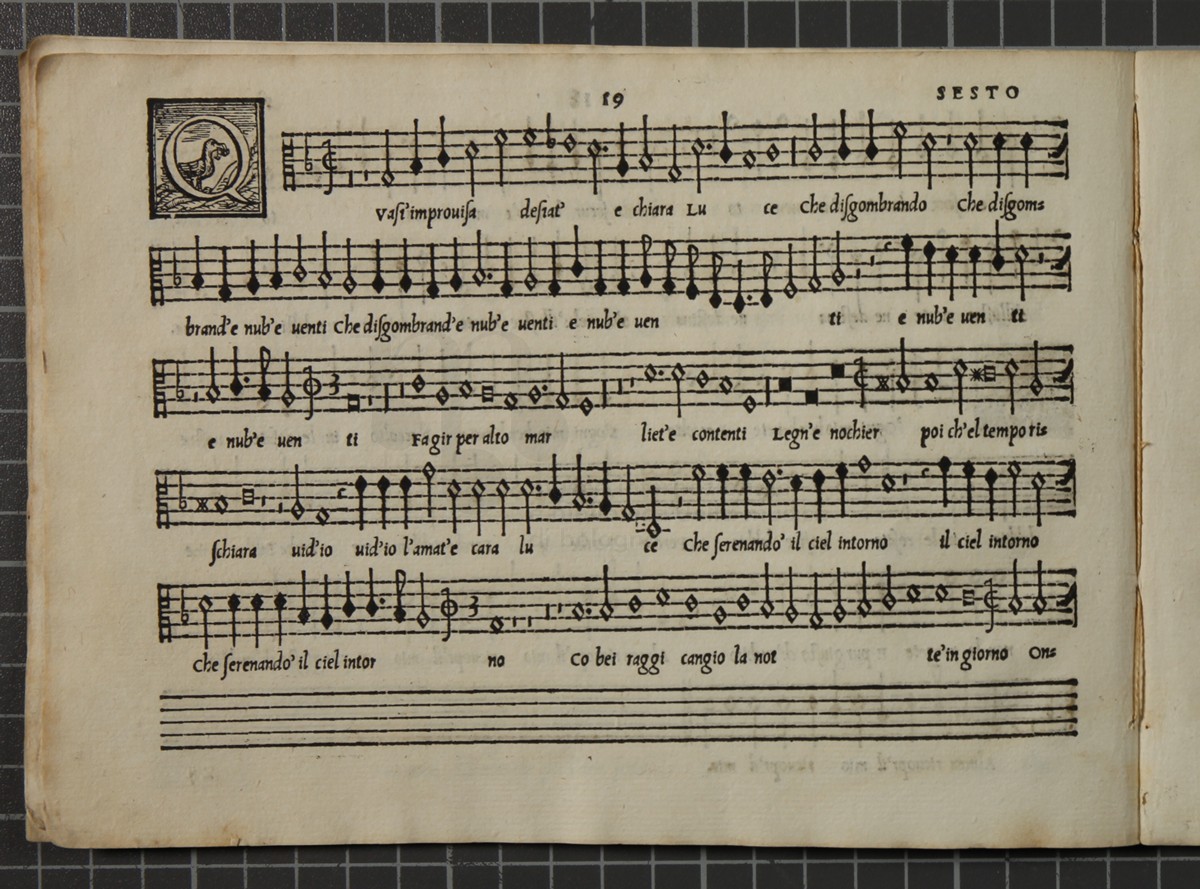 19
SESTO
Q Vasi'improuisa desiat' e chiara Lu ce Che disgombrando Che disgom=
brand'e nub'e uenti Che disgombrand'e nub'e uenti e nub'e uen ti e nub'e uen ti
e nub'e uen ti Fagir per alto mar liet'e contenti Legn'e nochier poi ch'el tempo ris
schiara uid'io uid'io l'amat'e cara lu ce Che serenando' il ciel intorno il ciel intorno
Che serenando' il ciel intor no Co bei raggi cangio la not te'in giorno On=